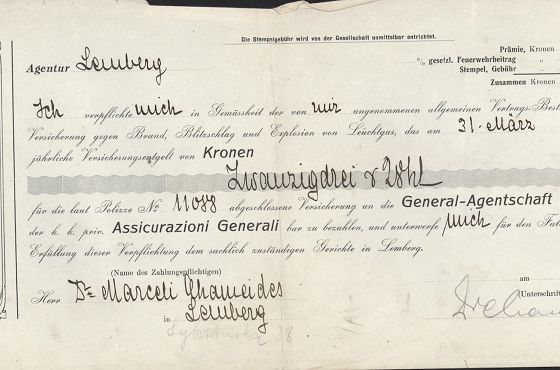 Die Stempelgebühr wird von der Gesellschaft unmittelbar entrichtet.
Prämie, Kronen
% gesetzl. Feuerwehrbeitrag „
Stempel, Gebühr „
Zusammen Kronen
Agentur Lemberg
Ich verpflichte mich in Gemässheit der von mir angenommenen allgemeinen Vertrags-Best
Versicherung gegen Brand, Blitzschlag und Explosion von Leuchtgas, das am 31. März
jährliche Versicherungsentgelt von Kronen
Zwanzigdrei & 28hl
für die laut Polizze No 11088 abgeschlossene Versicherung an die General-Agentschaft
der k. k. priv. Assicurazioni Generali bar zu bezahlen, und unterwerfe mich für den Fal
Erfüllung dieser Verpflichtung dem sachlich zuständigen Gerichte in Lemberg.
(Name des Zahlungspflichtigen)
am
Herr Dr Marceli Chameides
(Unterschrift
in Lemberg